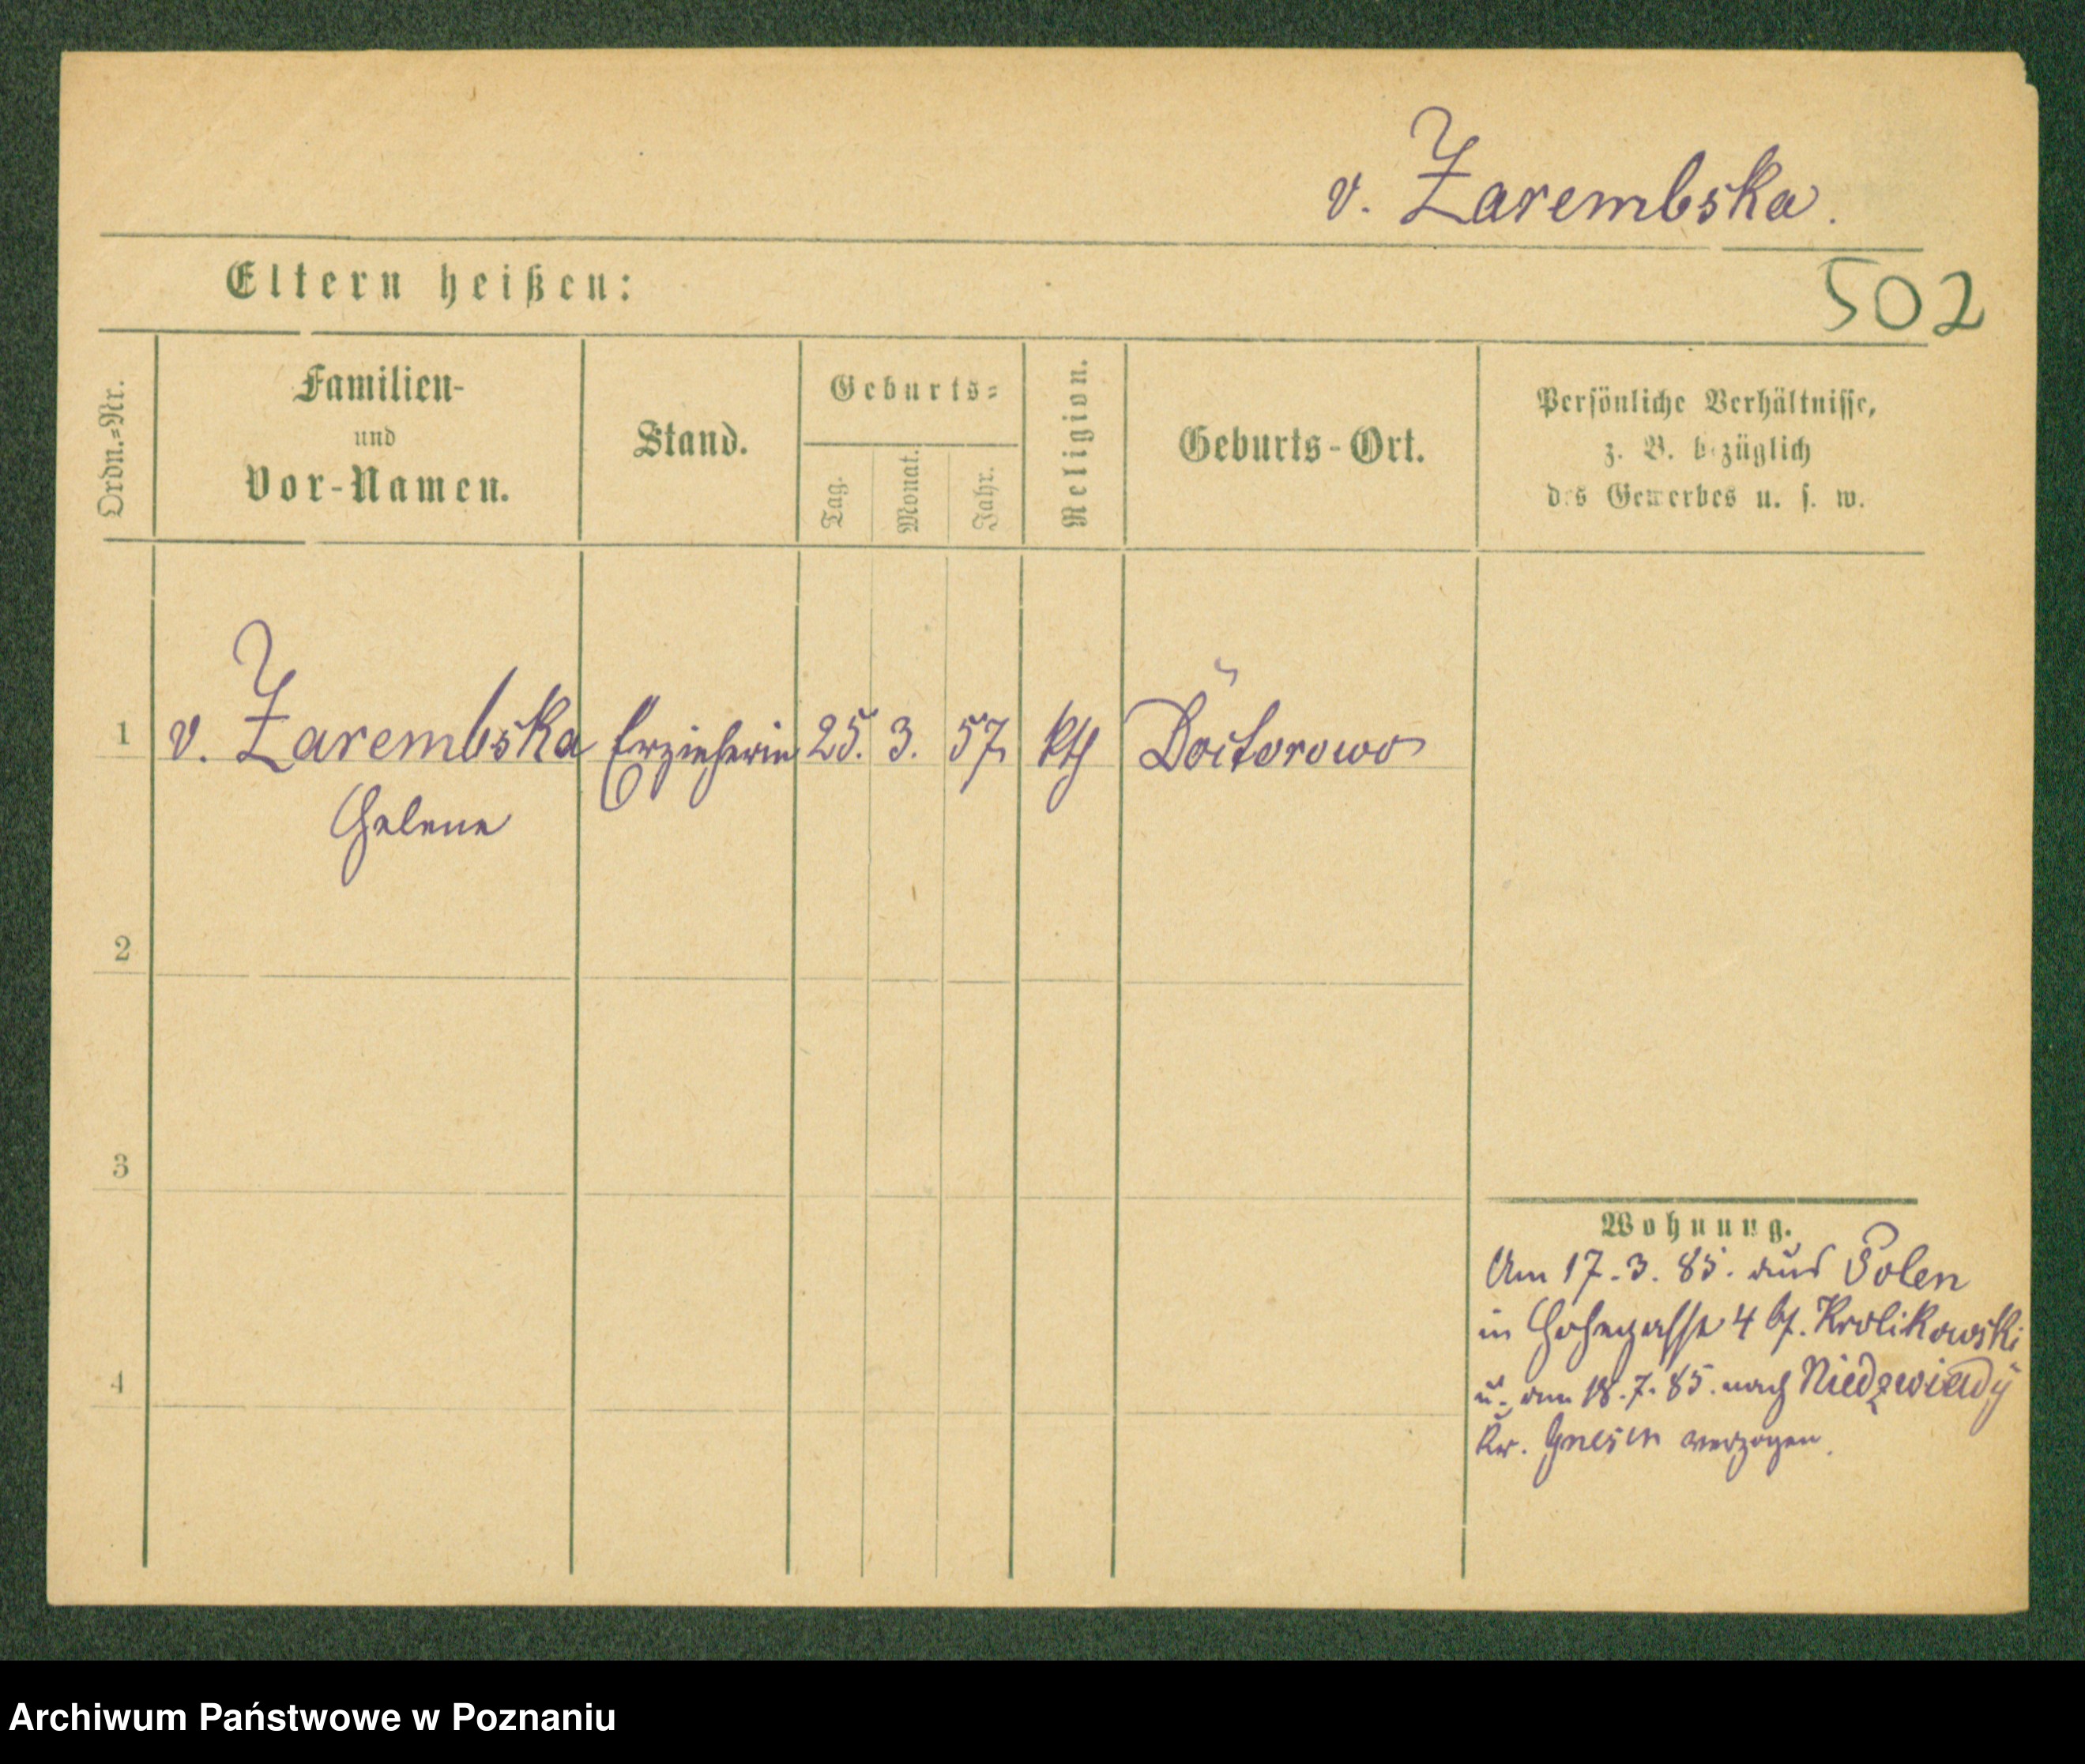 v. Zarembska.
Eltern heißen:
502
Ordn.=Nr.
Familien-
und
Vor-Namen.
Stand.
Geburts=
Tag.
Monat.
Jahr.
Religion.
Geburts-Ort.
Persönliche Verhältnisse,
z. B. bezüglich
des Gewerbes u. s. w.
1 v. Zarembska Erzieherin 25. 3. 57 kth
Helene
2
3
4
Wohnung.
Am 17.3.85. aus Polen
in Hohegasse 4 bei Krolikowski
u. am 18.7.85. nach Niedzwiady
Kr. Gnesen verzogen.
Archiwum Państwowe w Poznaniu